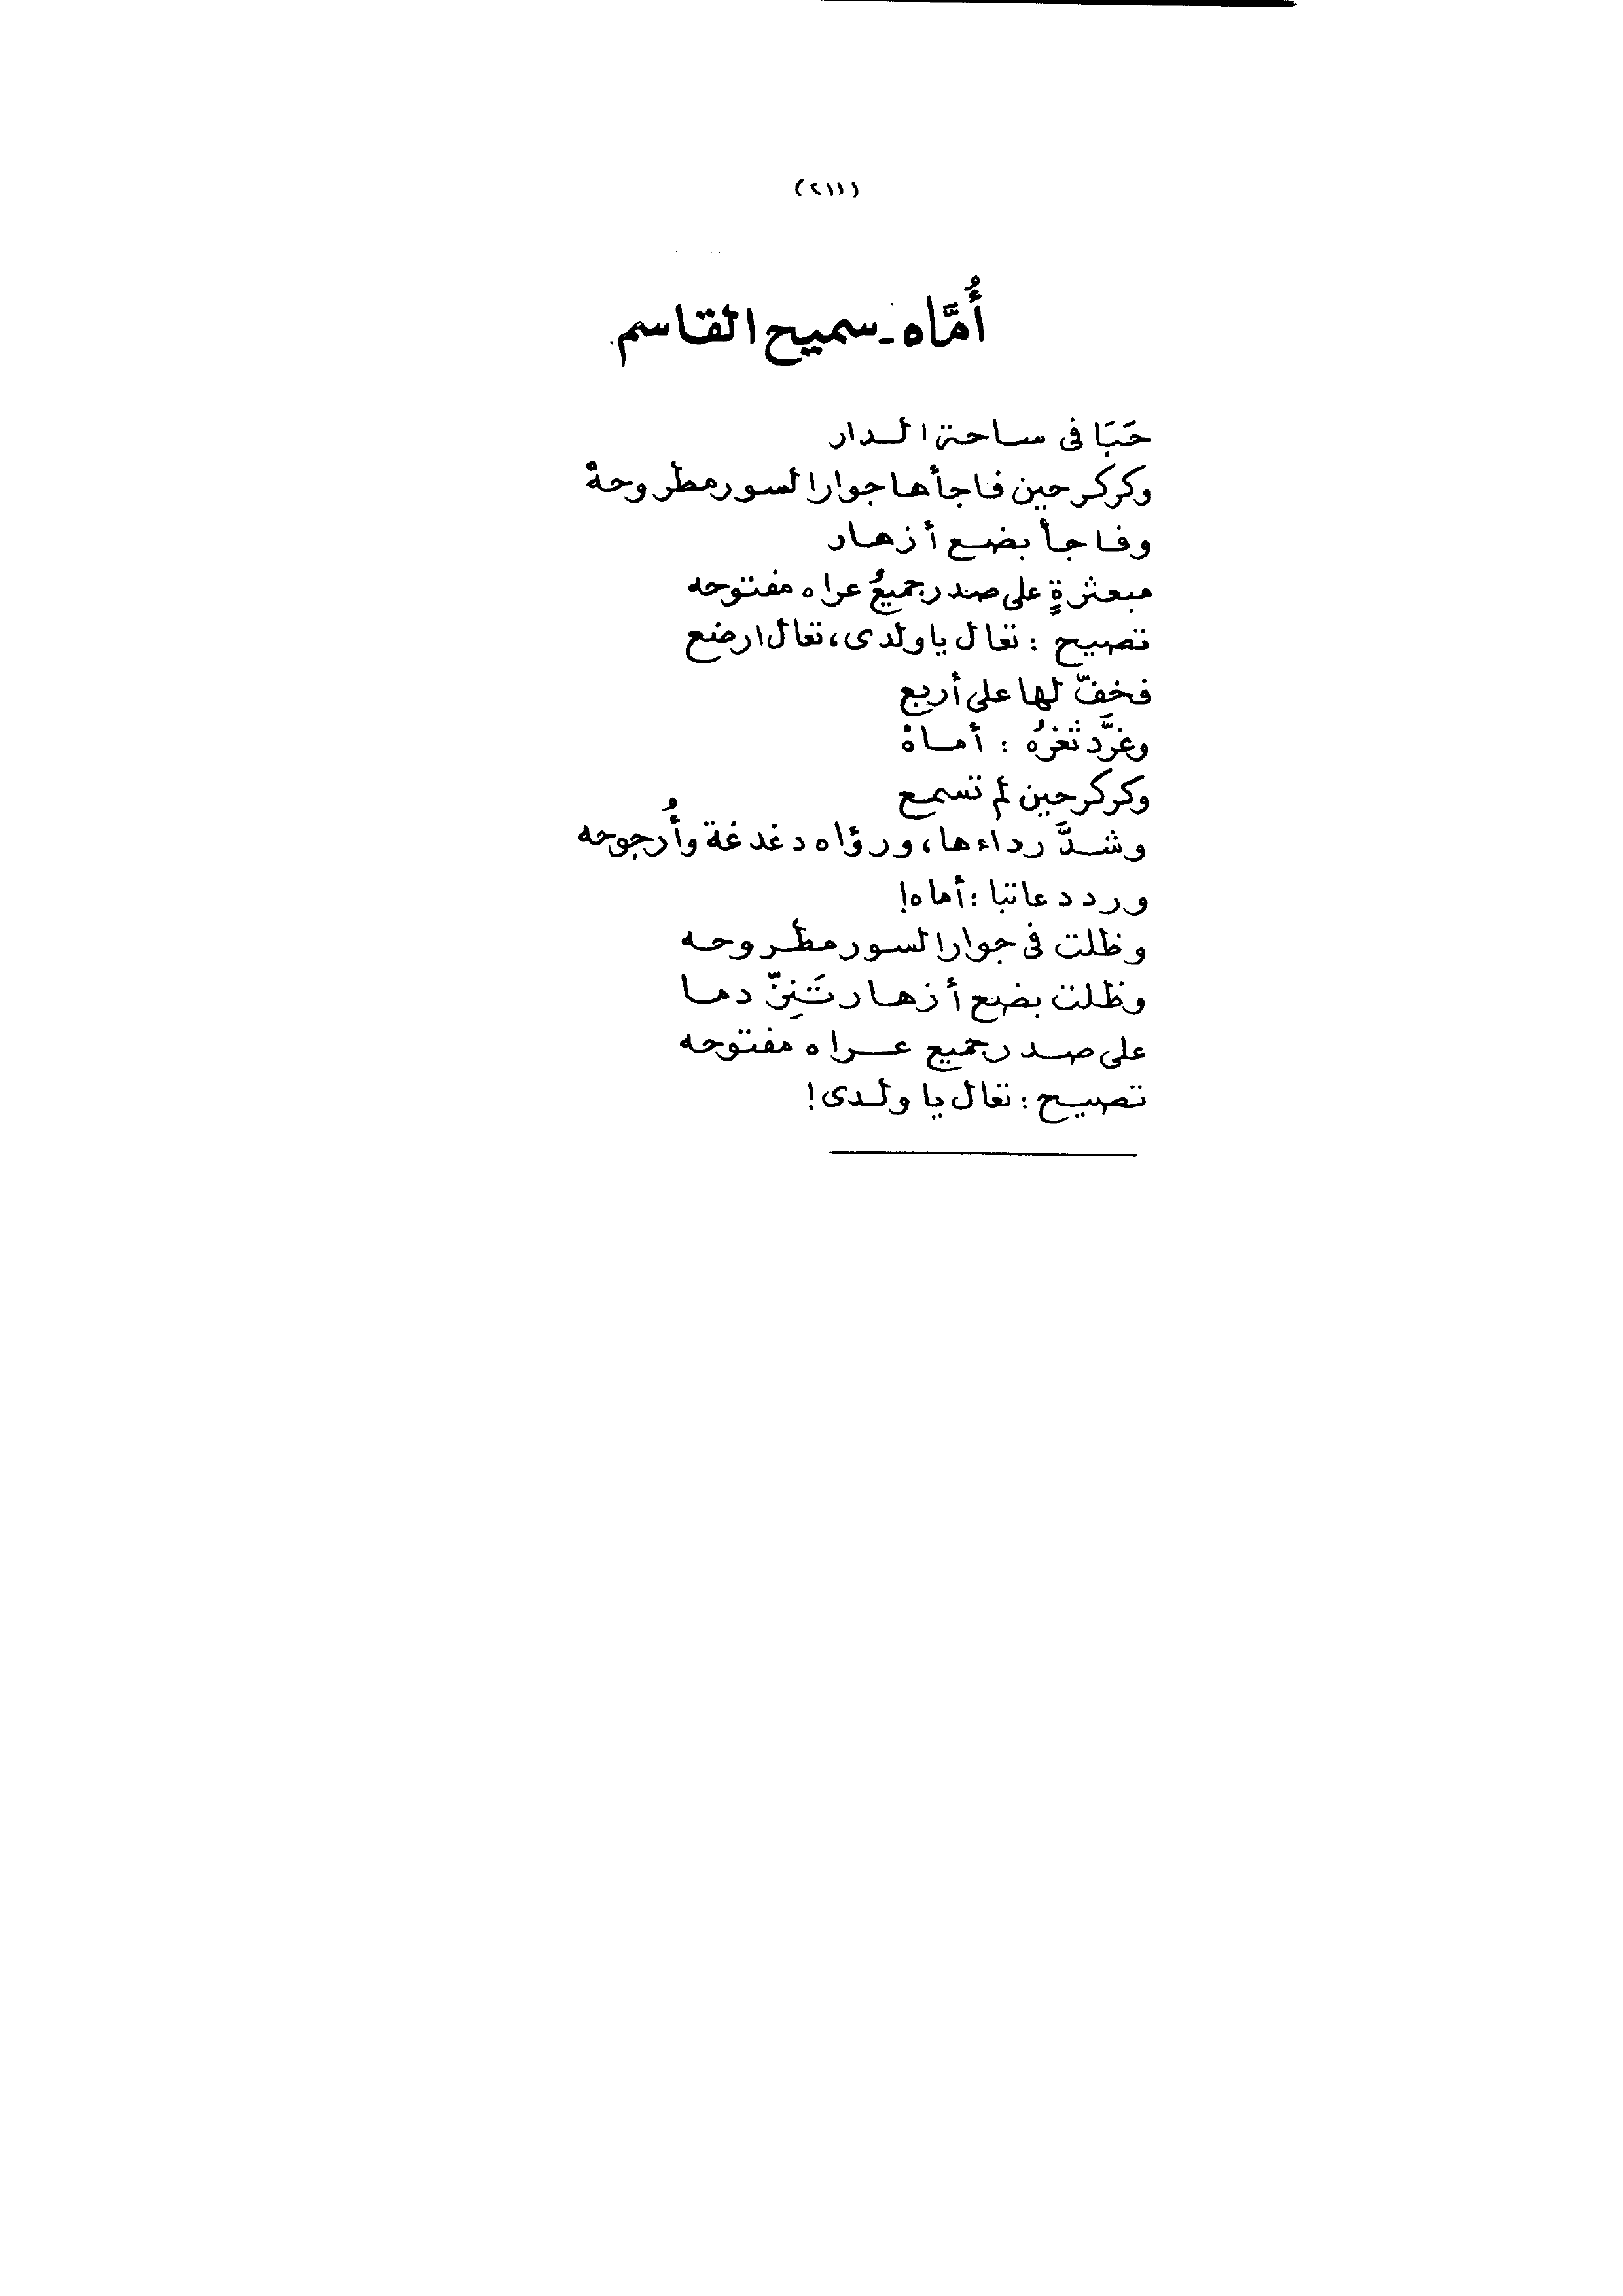 (٢١١)
أُمَّاه - سميح القاسم
حَبَا فى ساحة الدار
وكركر حين فاجأها جوار السور مطروحهْ
وفاجأ بضع أزهار
مبعثرةٍ على صدر جميعُ عراه مفتوحه
تصيح : تعال يا ولدى، تعال ارضع
فخفّ لها على أربع
وغرَّد ثغرُه : أماهْ
وكركر حين لم تسمع
وشدَّ رداءها، ورؤاه دغدغة وأُرجوحه
وردد عاتبا : أماه!
وظلت فى جوار السور مطروحه
وظلت بضع أزهار تَنِزّ دما
على صدر جميع عراه مفتوحه
تصيح : تعال يا ولدى!